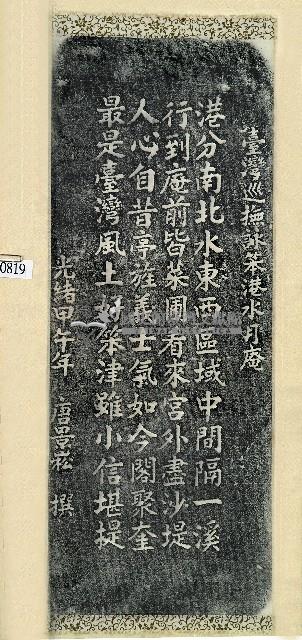 臺灣巡撫詠笨港水月庵
港分南北水東西區域中間隔一溪
行到庵前皆菜圃看來宮外盡沙堤
人心自昔亭旌義士氣如今閣聚奎
最是臺灣風土好笨津雖小信堪提
光緒甲午年 唐景崧 撰
0819